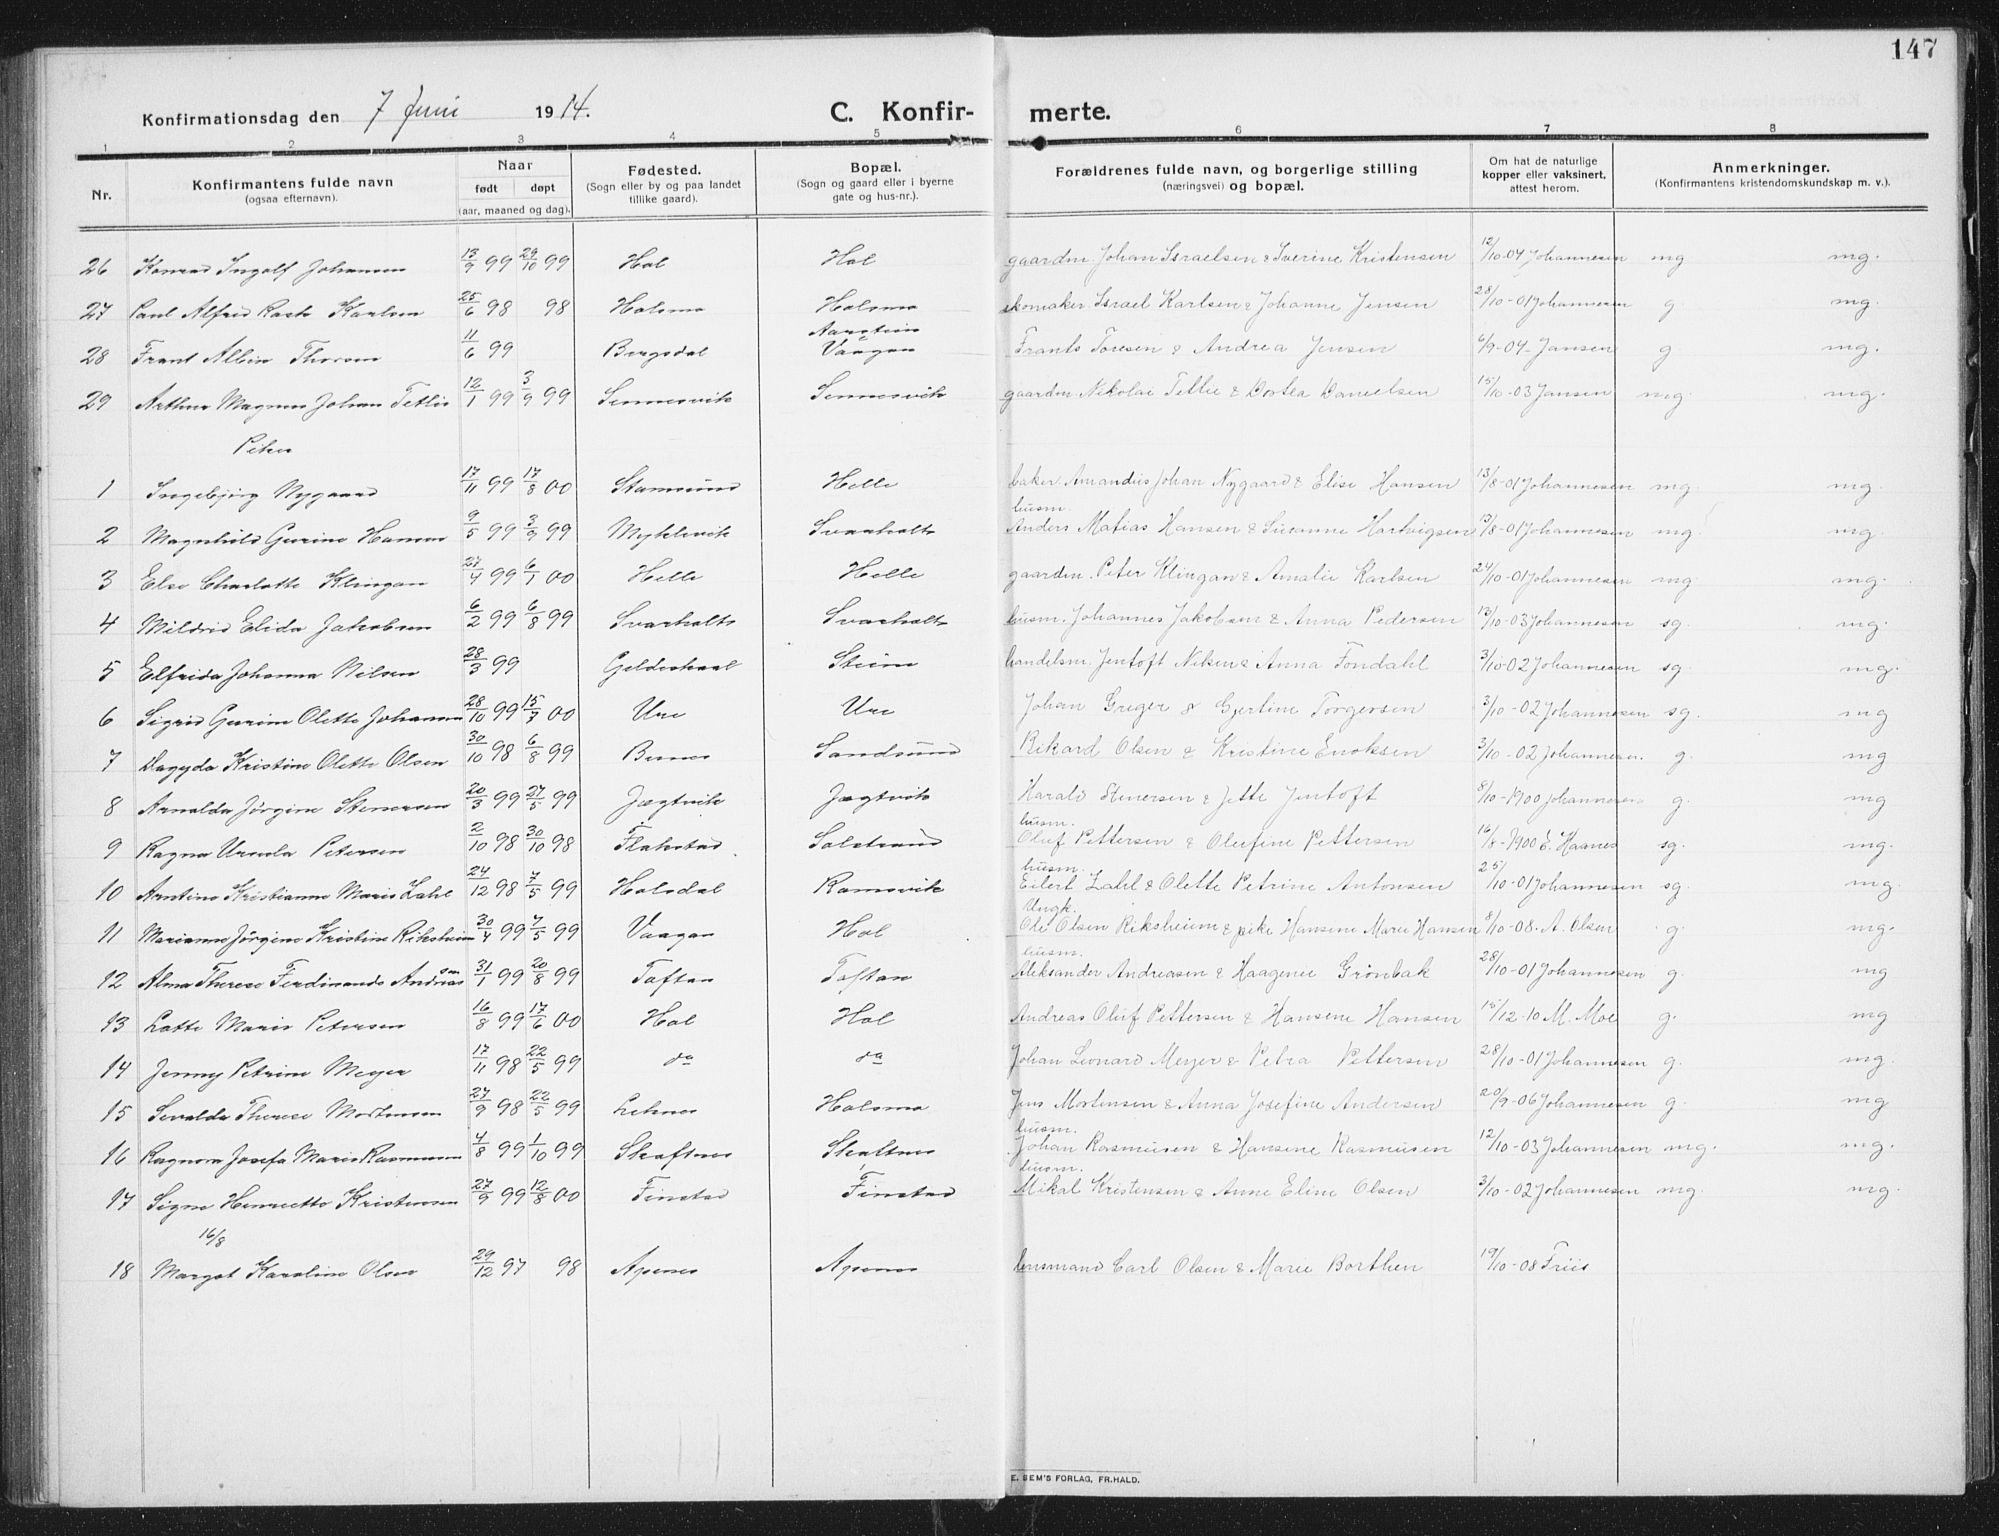 147
Konfirmationsdag den 7 Juni 1914. C. Konfir- merte.
1 2 3 4 5 6 7 8
Nr. Konfirmantens fulde navn (ogsaa efternavn). Naar født døpt (aar, maaned og dag). Fødested. (Sogn eller by og paa landet tillike gaard). Bopæl. (Sogn og gaard eller i byerne gate og hus-nr.). Forældrenes fulde navn, og borgerlige stilling (næringsvei) og bopæl. Om hat de naturlige kopper eller vaksinert, attest herom. Anmerkninger. (Konfirmantens kristendomskundskap m. v.).
26 Konrad Ingolf Johansen 13/9 99 29/10 99 Hol Hol gaardm. Johan Israelsen & Sverine Kristensen 12/10-04 Johannesen mg mg.
27 Paul Alfred Rasto Karlsen 25/6 98 98 Holsmo Holsmo skomaker Israel Karlsen & Johanne Jensen 28/10-01 Johannesen g. mg.
28 Frant Albin Thoresen 11/6 99 Bergsdal Aarstein Vaagan Frants Toresen & Andrea Jensen 6/9-04 Jansen g mg.
29 Arthur Magnus Johan Tetlie 12/1 99 3/9 99 Sennesvik Sennesvik gaardm. Nikolai Tetlie & Dortea Danielsen 15/10-03 Jansen mg. mg.
Piker
1 Ingebjørg Nygaard 17/11 99 17/8 00 Stamsund Helle baker Amandus Johan Nygaard & Elise Hansen 13/8-01 Johannesen mg. mg.
2 Magnhild Gurine Hansen 9/5 99 3/9 99 Myklevik Svarholt husm. Anders Matias Hansen & Susanne Hartvigsen 13/8-01 Johannesen mg. mg.
3 Else Charlotte Klingan 27/4 99 6/1 00 Helle Helle gaardm. Peter Klingan & Amalie Karlsen 24/10-01 Johannesen mg. mg.
4 Mildrid Elida Jakobsen 6/2 99 6/8 99 Svarholt Svarholt husm. Johannes Jakobsen & Anna Pedersen 13/10-03 Johannesen sg. mg.
5 Elfrida Johanna Nilsen 28/3 99 Gildeskaal Steine handelsm. Jentoft Nilsen & Anna Fondahl 3/10-02 Johannesen sg. mg.
6 Sigrid Gurine Olette Johansen 28/10 99 15/7 00 Ure Ure Johan Greger & Gjertine Torgersen 3/10-02 Johannesen sg. mg
7 Dagyda Kristine Olette Olsen 30/10 98 6/8 99 Bernes Sandsund Rikard Olsen & Kristine Enoksen 3/10-02 Johannesen. g. mg
8 Arnalda Jørgine Stenersen 20/3 99 27/5 99 Jægtvik Jægtvik Harald Stenersen & Jette Jentoft 8/10-1900 Johannesen g. mg
9 Ragna Ursula Petersen 2/10 98 30/10 98 Flakstad Solstrand husm. Oluf Pettersen & Olufine Pettersen 16/8-1900 E. Haanes sg. mg.
10 Arntine Kristianne Marie Zahl 24/12 98 7/5 99 Holsdal Ramsvik husm. Eilert Zahl & Olette Petrine Antonsen 25/10-01 Johannesen sg. mg.
11 Marianne Jørgine Kristine Riksheim 30/4 99 7/5 99 Vaagan Hol Ungk. Ole Olsen Riksheim & pike Hansene Marie Hansen 8/10-08. A. Olsen g. mg.
12 Alma Therese Ferdinande Andreassen 31/1 99 20/8 99 Toftan Toftan husm. Aleksander Andreasen & Haagenee Grønbak 28/10-01 Johannesen g. mg
13 Lotte Marie Petersen 16/8 99 17/6 00 Hol Hol Andreas Oluf Pettersen & Hansene Hansen 15/12-10 M. Moe g. mg
14 Jenny Petrine Meyer 17/11 98 22/5 99 do do Johan Leonard Meyer & Petra Pettersen 28/10-01 Johannesen g. mg.
15 Sevalda Therese Mortensen 27/9 98 22/5 99 Leknes Holsmo Jens Mortensen & Anna Josefine Andersen 20/9-06 Johannesen g. mg
16 Ragnora Josefa Marie Rasmussen 4/8 99 1/10 99 Skaftnes Skaftnes husm. Johan Rasmusen & Hansene Rasmusen 12/10-03 Johannesen mg. mg.
17 Signe Henriette Kristensen 27/9 99 12/8 00 Finstad Finstad husm. Mikal Kristensen & Anne Eline Olsen 3/10-02 Johannesen mg. mg.
16/8
18 Margot Karoline Olsen 29/12 97 98 Apenes Apenes lensmand Carl Olsen & Marie Borthen 19/10-08 Friis
E. SEM'S FORLAG, FR.HALD.